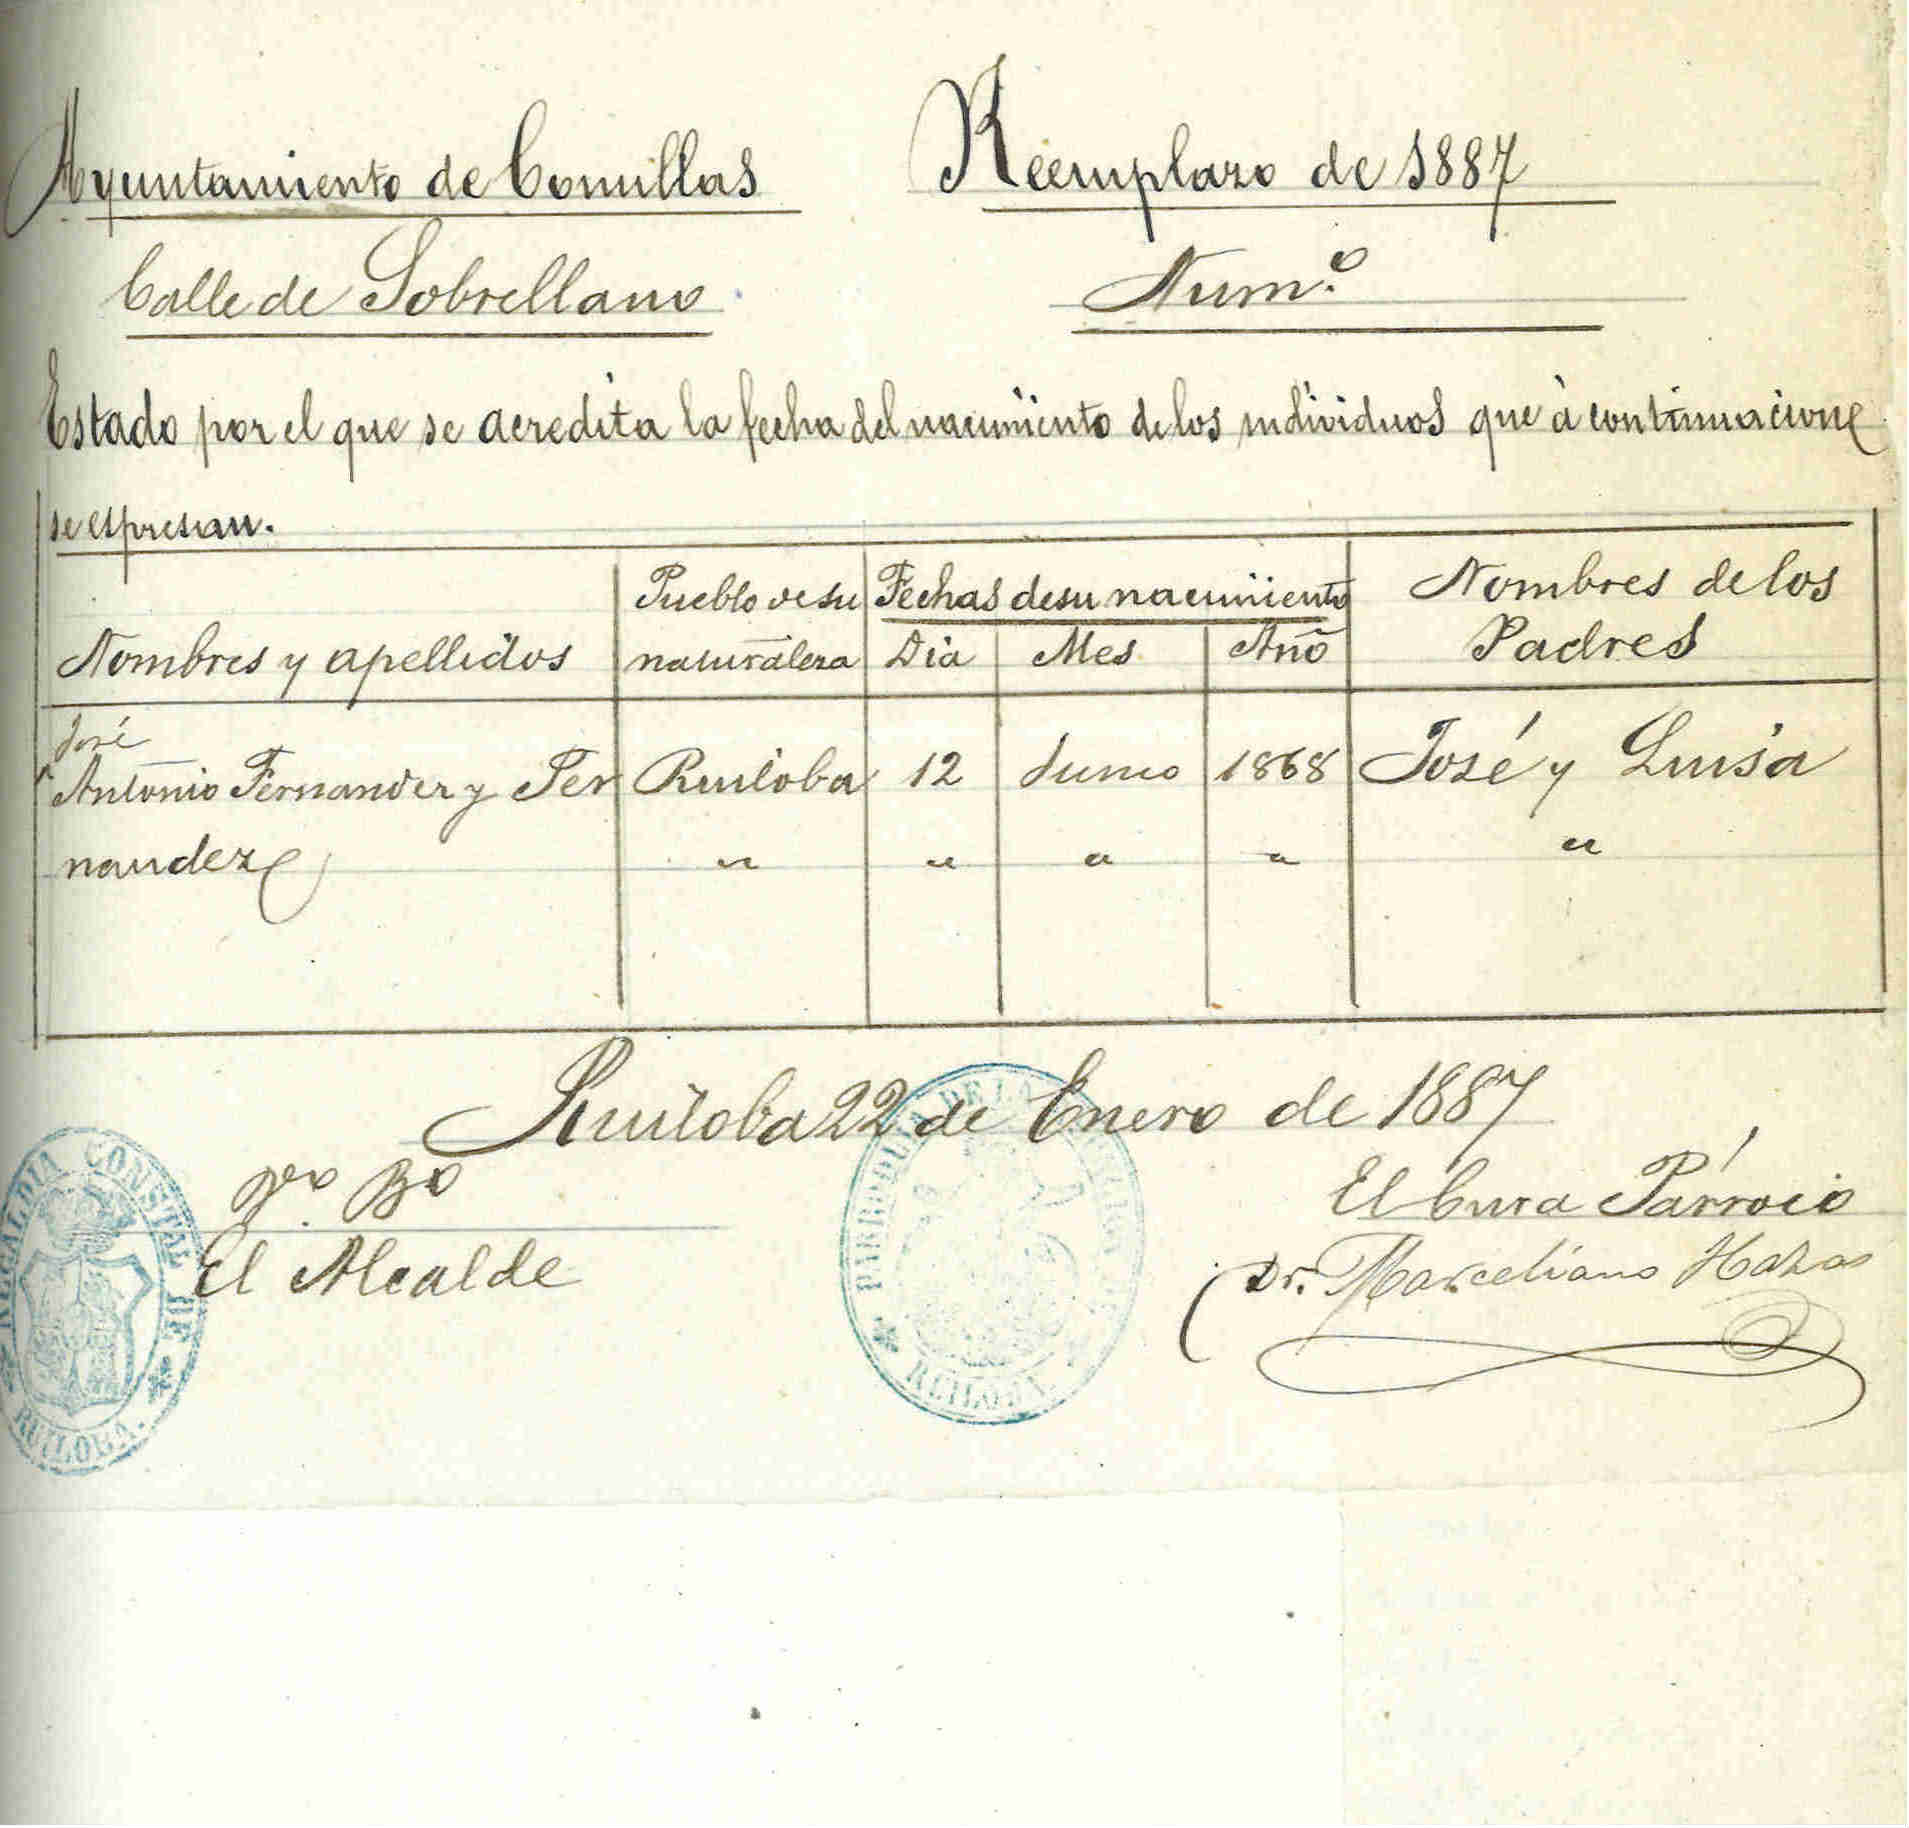 Ayuntamiento de Comillas Reemplazo de 1887
Calle de Sobrellano Num.º
Estado por el que se acredita la fecha del nacimiento de los individuos que à continuacione
se espresan.
Nombres y apellidos Pueblo de su naturaleza Fechas de su nacimiento Nombres de los Padres
Dia Mes Año
José
Antonio Fernandez y Fer Ruiloba 12 Junio 1868 José y Luisa
nandez " " " " "
Ruiloba 22 de Enero de 1887
Vº Bº El Cura Párroco
El Alcalde Dr. Marceliano Hazas
ALCALDIA CONSTAL DE RUILOBA.
PARROQUIA DE LA RUILOBA